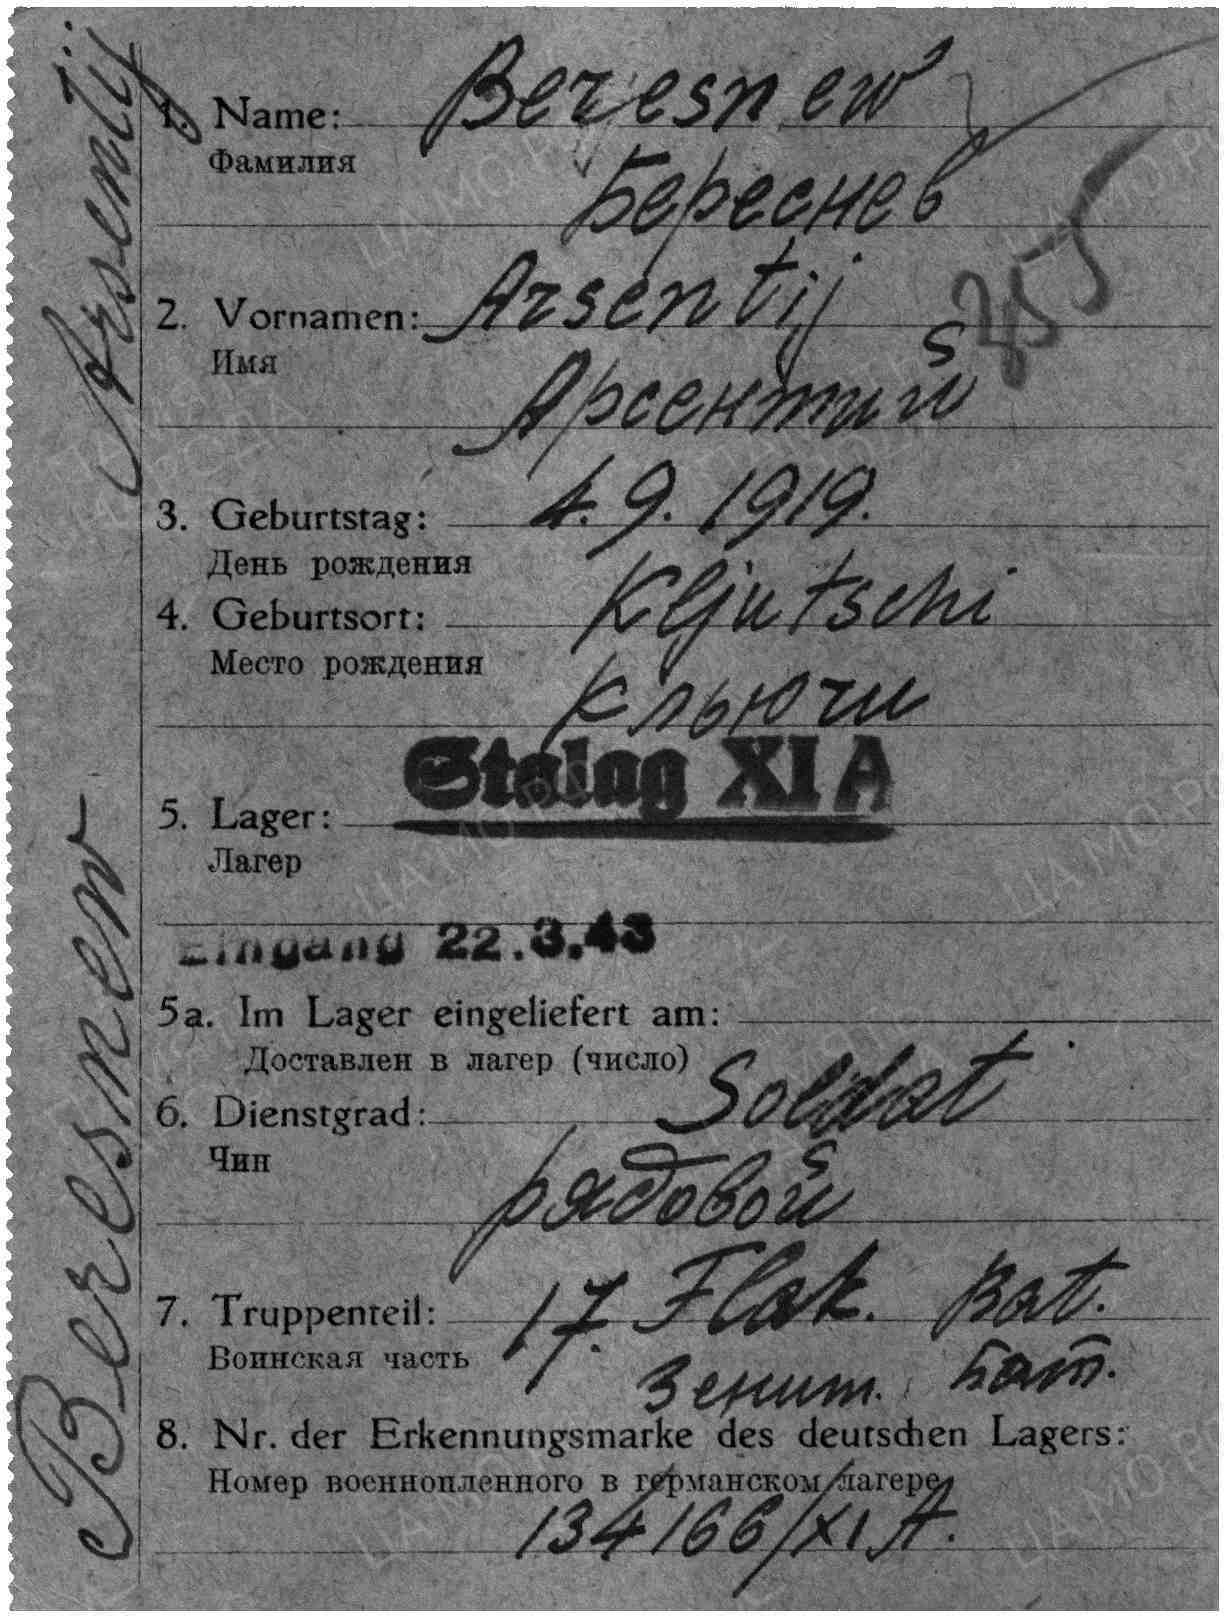 Beresnew Arsentij
1. Name: Beresnew
Фамилия
Береснев
255
2. Vornamen: Arsentij
Имя
Арсентий
3. Geburtstag: 4.9.1919.
День рождения
4. Geburtsort: Kljutschi
Место рождения
Кльючи
Stalag XI A
5. Lager:
Лагер
Eingang 22.3.43
5a. Im Lager eingeliefert am:
Доставлен в лагер (число)
6. Dienstgrad: Soldat
Чин
рядовой
7. Truppenteil: 17. Flak. Bat.
Воинская часть
Зенит. бат.
8. Nr. der Erkennungsmarke des deutschen Lagers:
Номер военнопленного в германском лагере
134166/XI A.